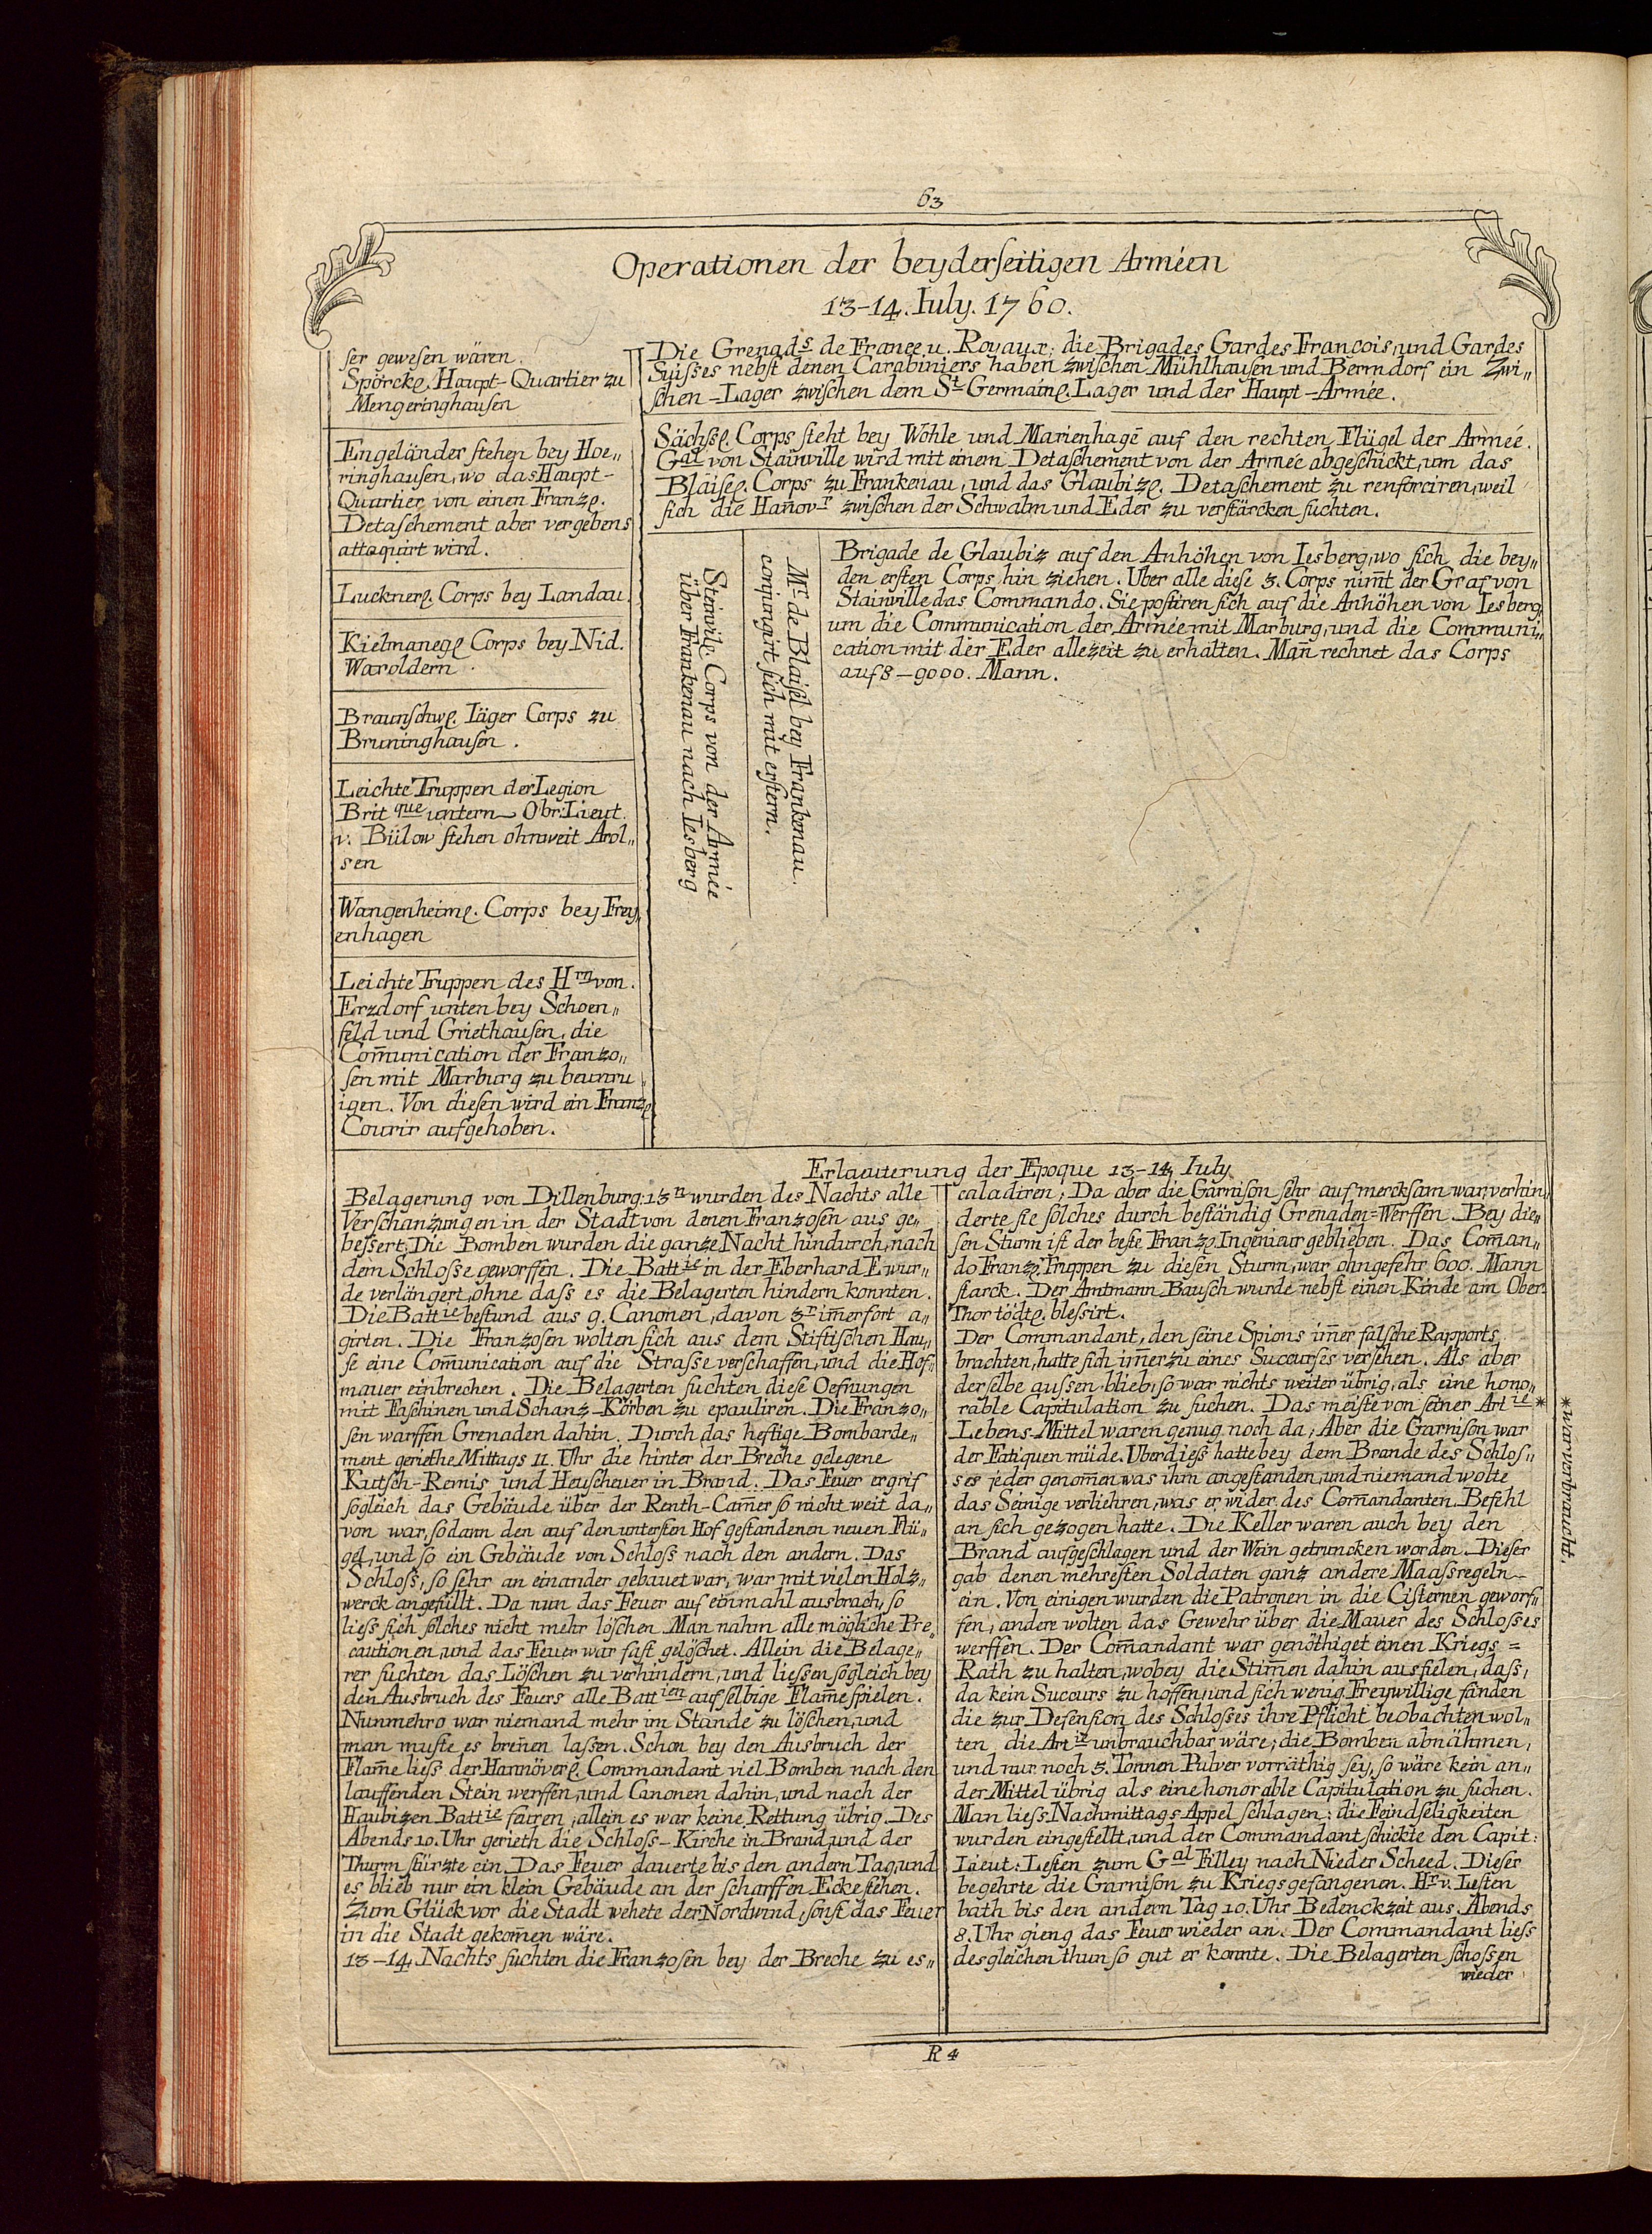 63
Operationen der beyderseitigen Arméen
13-14. Iuly. 1760.
ser gewesen wären.
Spörckl. Haupt-Quartier zu
Mengeringhausen
Engeländer stehen bey Hoe„
ringhausen, wo das Haupt-
Quartier von einen Franzl.
Detaschement aber vergebens
attaquirt wird.
Lucknerl. Corps bey Landau.
Kielmanegl Corps bey Nid.
Waroldern.
Braunschwl. Iäger Corps zu
Bruninghausen.
Leichte Truppen der Legion
Brit que untern Obr: Lieut.
v. Bülow stehen ohnweit Arol„
sen
Wangenheiml. Corps bey Frey„
enhagen
Leichte Truppen des Hrn von.
Erzdorf unten bey Schoen„
feld und Griethausen, die
Com̄unication der Franzo„
sen mit Marburg zu beunru„
igen. Von diesen wird ein Franzl
Courir aufgehoben.
Die Grenads de France u. Royaux; die Brigades Gardes Francois, und Gardes
Suisses nebst denen Carabiniers haben zwischen Mühlhausen und Berndorf ein Zwi„
schen-Lager zwischen dem St Germainl. Lager und der Haupt-Armée.
Sächsl. Corps steht bey Wohle und Marienhagē auf den rechten Flügel der Armée.
Gal von Stainville wird mit einem Detaschement von der Armée abgeschickt, um das
Blaisel. Corps zu Frankenau, und das Glaubizl. Detaschement zu renforciren, weil
sich die Han̄ovr zwischen der Schwalm und Eder zu verstärcken suchten.
Steinvilll. Corps von der Armée
über Frankenau nach Iesberg
Mr de Blaisel bey Frankenau.
conjungirt sich mit erstern.
Brigade de Glaubiz auf den Anhöhen von Iesberg, wo sich die bey„
den ersten Corps hin ziehen. Uber alle diese 3. Corps nim̄t der Graf von
Stainville das Commando. Sie postiren sich auf die Anhöhen von Iesberg,
um die Communication der Armée mit Marburg, und die Communi„
cation mit der Eder allezeit zu erhalten. Man̄ rechnet das Corps
auf 8-9000. Mann.
Erlaeuterung der Epoque 13-14. Iuly
Belagerung von Dillenburg: 13n wurden des Nachts alle
Verschanzungen in der Stadt von denen Franzosen aus ge„
bessert; Die Bomben wurden die ganze Nacht hindurch, nach
dem Schlosse geworffen. Die Battie in der Eberhard E wur„
de verlängert, ohne dass es die Belagerten hindern konnten.
Die Battie bestund aus 9. Canonen, davon 3r im̄erfort a„
girten. Die Franzosen wolten sich aus dem Stiftischen Hau„
se eine Com̄unication auf die Strasse verschaffen, und die Hof„
mauer einbrechen. Die Belagerten suchten diese Oefnungen
mit Faschinen und Schanz-Körben zu epauliren. Die Franzo„
sen warffen Grenaden dahin. Durch das heftige Bombarde„
ment geriethe Mittags 11. Uhr die hinter der Breche gelegene
Kutsch-Remis und Heuscheuer in Brand. Das Feuer ergrif
sogleich das Gebäude über der Renth-Cam̄er so nicht weit da„
von war, sodann den auf den untersten Hof gestandenen neuen Flü„
gel, und so ein Gebäude von Schloss nach den andern. Das
Schloss, so sehr an einander gebauet war, war mit vielen Holz„
werck angefüllt. Da nun das Feuer auf einmahl ausbrach, so
liess sich solches nicht mehr löschen. Man nahm alle mögliche Pre„
cautionen, und das Feuer war fast gelöschet. Allein die Belage„
rer suchten das Löschen zu verhindern, und liessen sogleich bey
den Ausbruch des Feuers alle Battien auf selbige Flam̄e spielen.
Nunmehro war niemand mehr im Stande zu löschen, und
man muste es bren̄en lassen. Schon bey den Ausbruch der
Flam̄e liess der Hannöverl. Commandant viel Bomben nach den
lauffenden Stein werffen, und Canonen dahin, und nach der
Haubizen Battie feuren, allein es war keine Rettung übrig. Des
Abends 10. Uhr gerieth die Schloss-Kirche in Brand, und der
Thurm stürzte ein. Das Feuer dauerte bis den andern Tag, und
es blieb nur ein klein Gebäude an der scharffen Ecke stehen.
Zum Glück vor die Stadt wehete der Nordwind, sonst das Feuer
in die Stadt gekom̄en wäre.
13-14. Nachts suchten die Franzosen bey der Breche zu es„
caladiren; Da aber die Garnison sehr aufmercksam war, verhin„
derte sie solches durch beständig Grenaden=Werffen. Bey die„
sen Sturm ist der beste Franzl. Ingeniair geblieben. Das Com̄an„
do Franzl. Truppen zu diesen Sturm, war ohngefehr 600. Mann
starck. Der Amtmann Bausch wurde nebst einen Kinde am Ober-
Thor tödtl. blessirt.
Der Commandant, den seine Spions im̄er falsche Rapports
brachten, hatte sich im̄erzu eines Succurses versehen. Als aber
derselbe aussen blieb, so war nichts weiter übrig, als eine hono„
rable Capitulation zu suchen. Das meiste von seiner Artie *
Lebens-Mittel waren genug noch da; Aber die Garnison war
der Fatiquen müde. Uberdiess hatte bey dem Brande des Schlos„
ses jeder genom̄en was ihm angestanden, und niemand wolte
das Seinige verliehren, was er wider des Com̄andanten Befehl
an sich gezogen hatte. Die Keller waren auch bey den
Brand aufgeschlagen und der Wein getruncken worden. Dieser
gab denen mehresten Soldaten ganz andere Maassregeln
ein. Von einigen wurden die Patronen in die Cisternen geworf„
fen, andere wolten das Gewehr über die Mauer des Schlosses
werffen. Der Com̄andant war genöthiget einen Kriegs=
Rath zu halten, wobey die Stim̄en dahin ausfielen, dass,
da kein Succurs zu hoffen, und sich wenig Freywillige fänden
die zur Defension des Schlosses ihre Pflicht beobachten wol„
ten, die Artie unbrauchbar wäre; die Bomben abnähmen,
und nur noch 3. Tonnen Pulver vorräthig sey, so wäre kein an„
der Mittel übrig als eine honorable Capitulation zu suchen.
Man liess Nachmittags Appel schlagen; die Feindseligkeiten
wurden eingestellt, und der Commandant schickte den Capit:
Lieut: Lesten zum Gal Filley nach Nieder Scheed. Dieser
begehrte die Garnison zu Kriegsgefangenen. Hr v. Lesten
bath bis den andern Tag 10. Uhr Bedenckzeit aus. Abends
8. Uhr gieng das Feuer wieder an. Der Commandant liess
desgleichen thun so gut er konnte. Die Belagerten schossen
wieder
* war verbraucht.
R 4